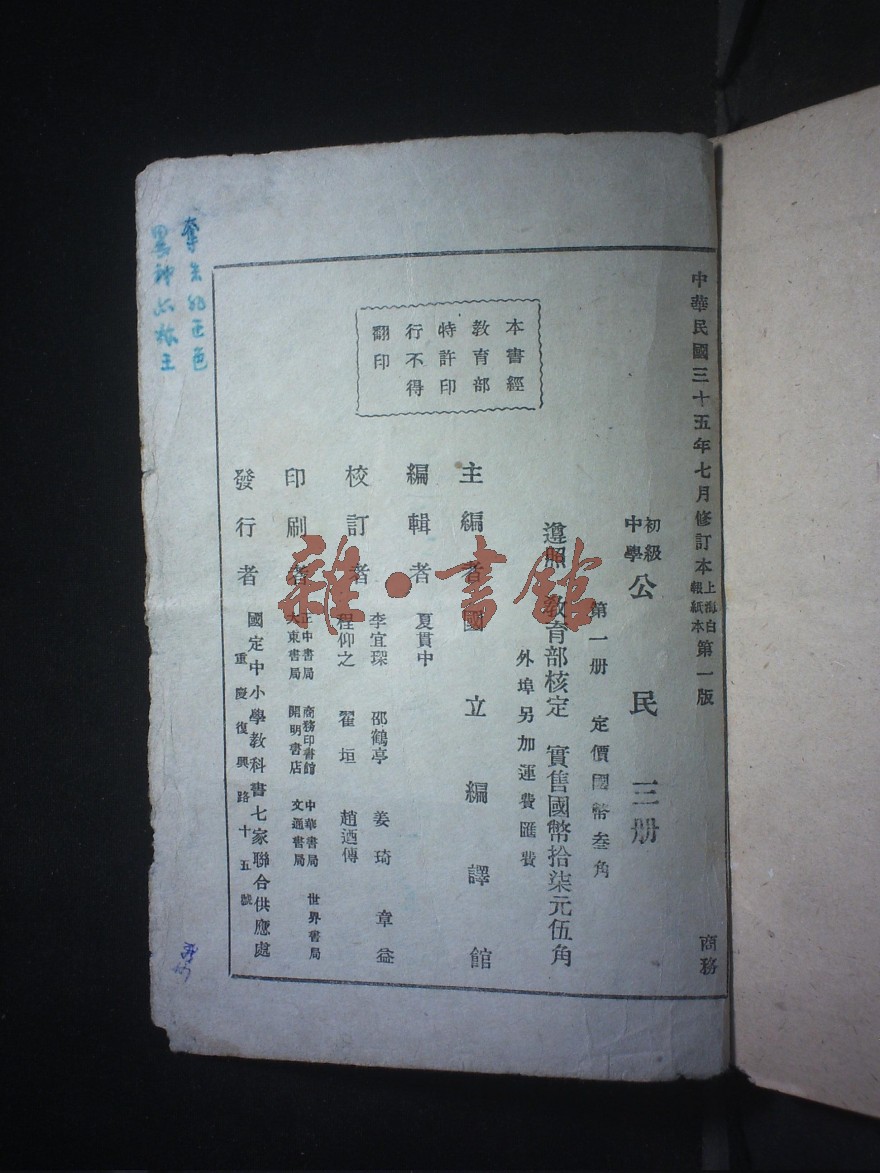 中華民國三十五年七月修訂本上海白報紙本第一版
商務
初級中學公民三册
第一册 定價國幣叁角
遵照教育部核定 實售國幣拾柒元伍角
外埠另加運費匯費
本書經
教育部
特許印
行不得
翻印
主編者 國立編譯館
編輯者 夏貫中
校訂者 李宜琛 邵鶴亭 姜琦 章益
程仰之 瞿垣 趙迺傳
印刷者 正中書局 商務印書館 中華書局 世界書局
大東書局 開明書店 文通書局
發行者 國定中小學教科書七家聯合供應處
重慶復興路十五號
雜·書館